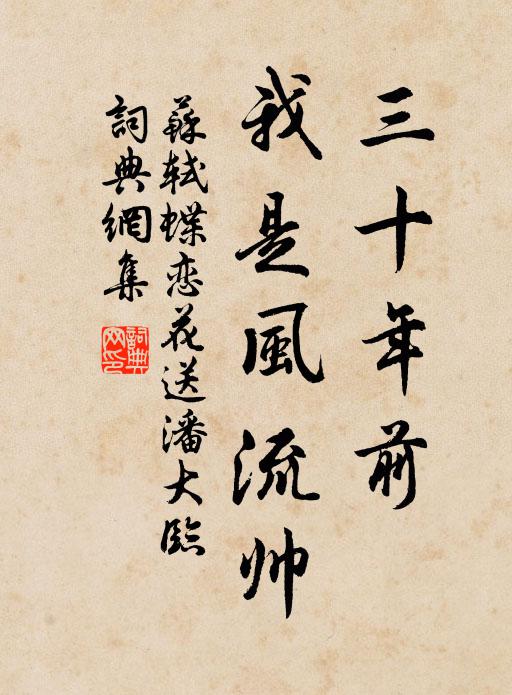 三十年前
我是風流帅
蘇軾蝶恋花送潘大臨
詞典網集
詞典
网印